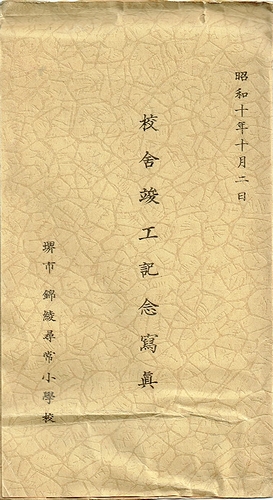 昭和十年十月二日
校舍竣工記念寫眞
堺市 錦綾尋常小學校